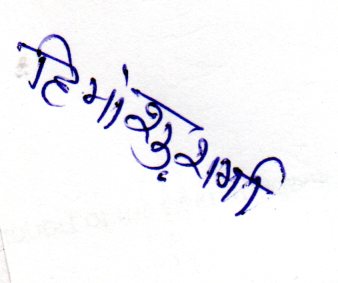 हिमांशु शर्मा